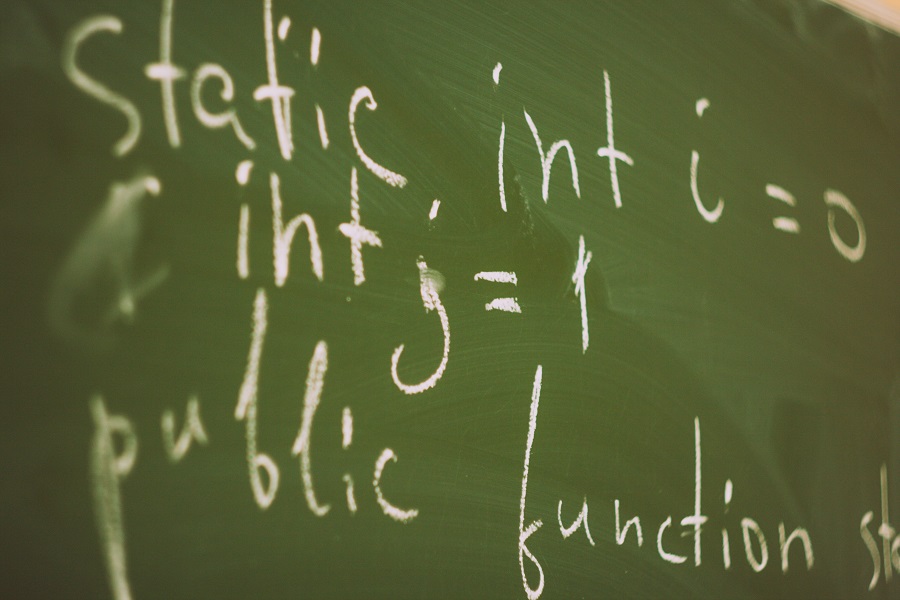 static int i = 0
int j = 1
public function